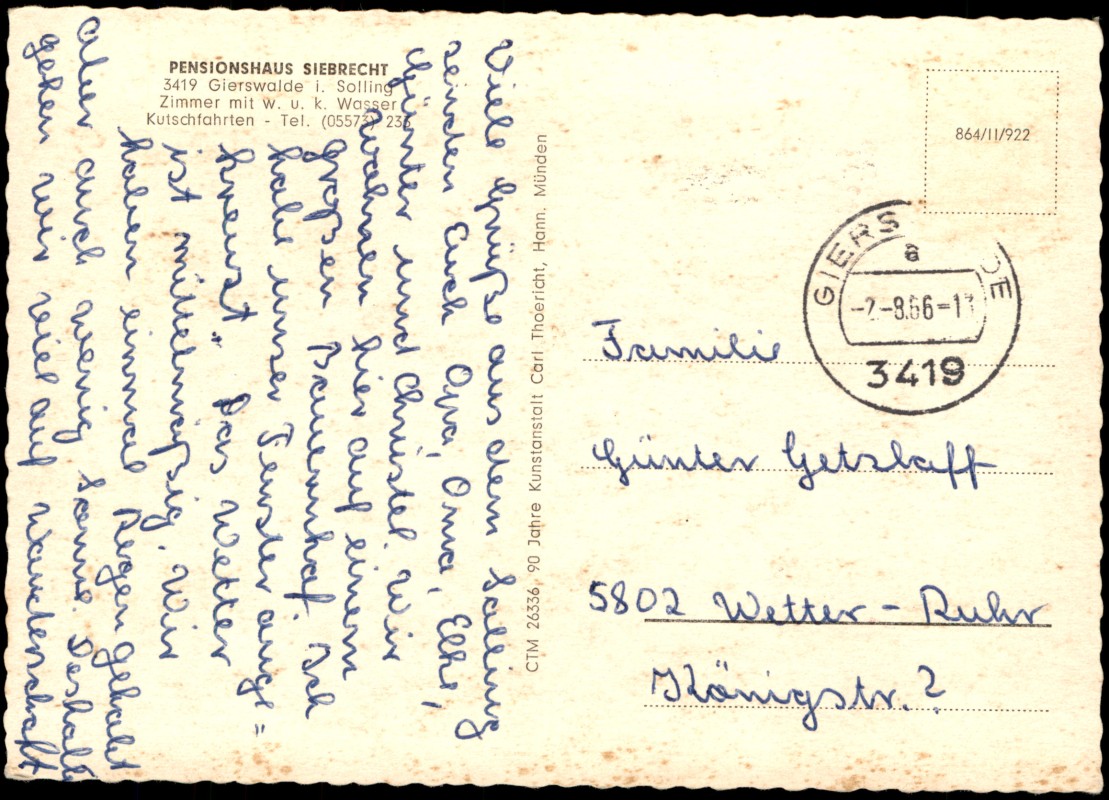 PENSIONSHAUS SIEBRECHT
3419 Gierswalde i. Solling
Zimmer mit w. u. k. Wasser
Kutschfahrten - Tel. (05573) 236
Viele Grüße aus dem Solling
senden Euch Opa, Oma, Elke,
Günter und Christel. Wir
wohnen hier auf einem
großen Bauernhof. Ich
habe unser Fenster ange=
kreuzt. Das Wetter
ist mittelmäßig. Wir
haben einmal Regen gehabt
aber auch wenig Sonne. Deshalb
gehen wir viel auf Wanderschaft
CTM 26336, 90 Jahre Kunstanstalt Carl Thoericht, Hann. Münden
864/II/922
GIERS DE
a
-8.66-1
3419
Familie
Günter Getzlaff
5802 Wetter - Ruhr
Königstr. ?